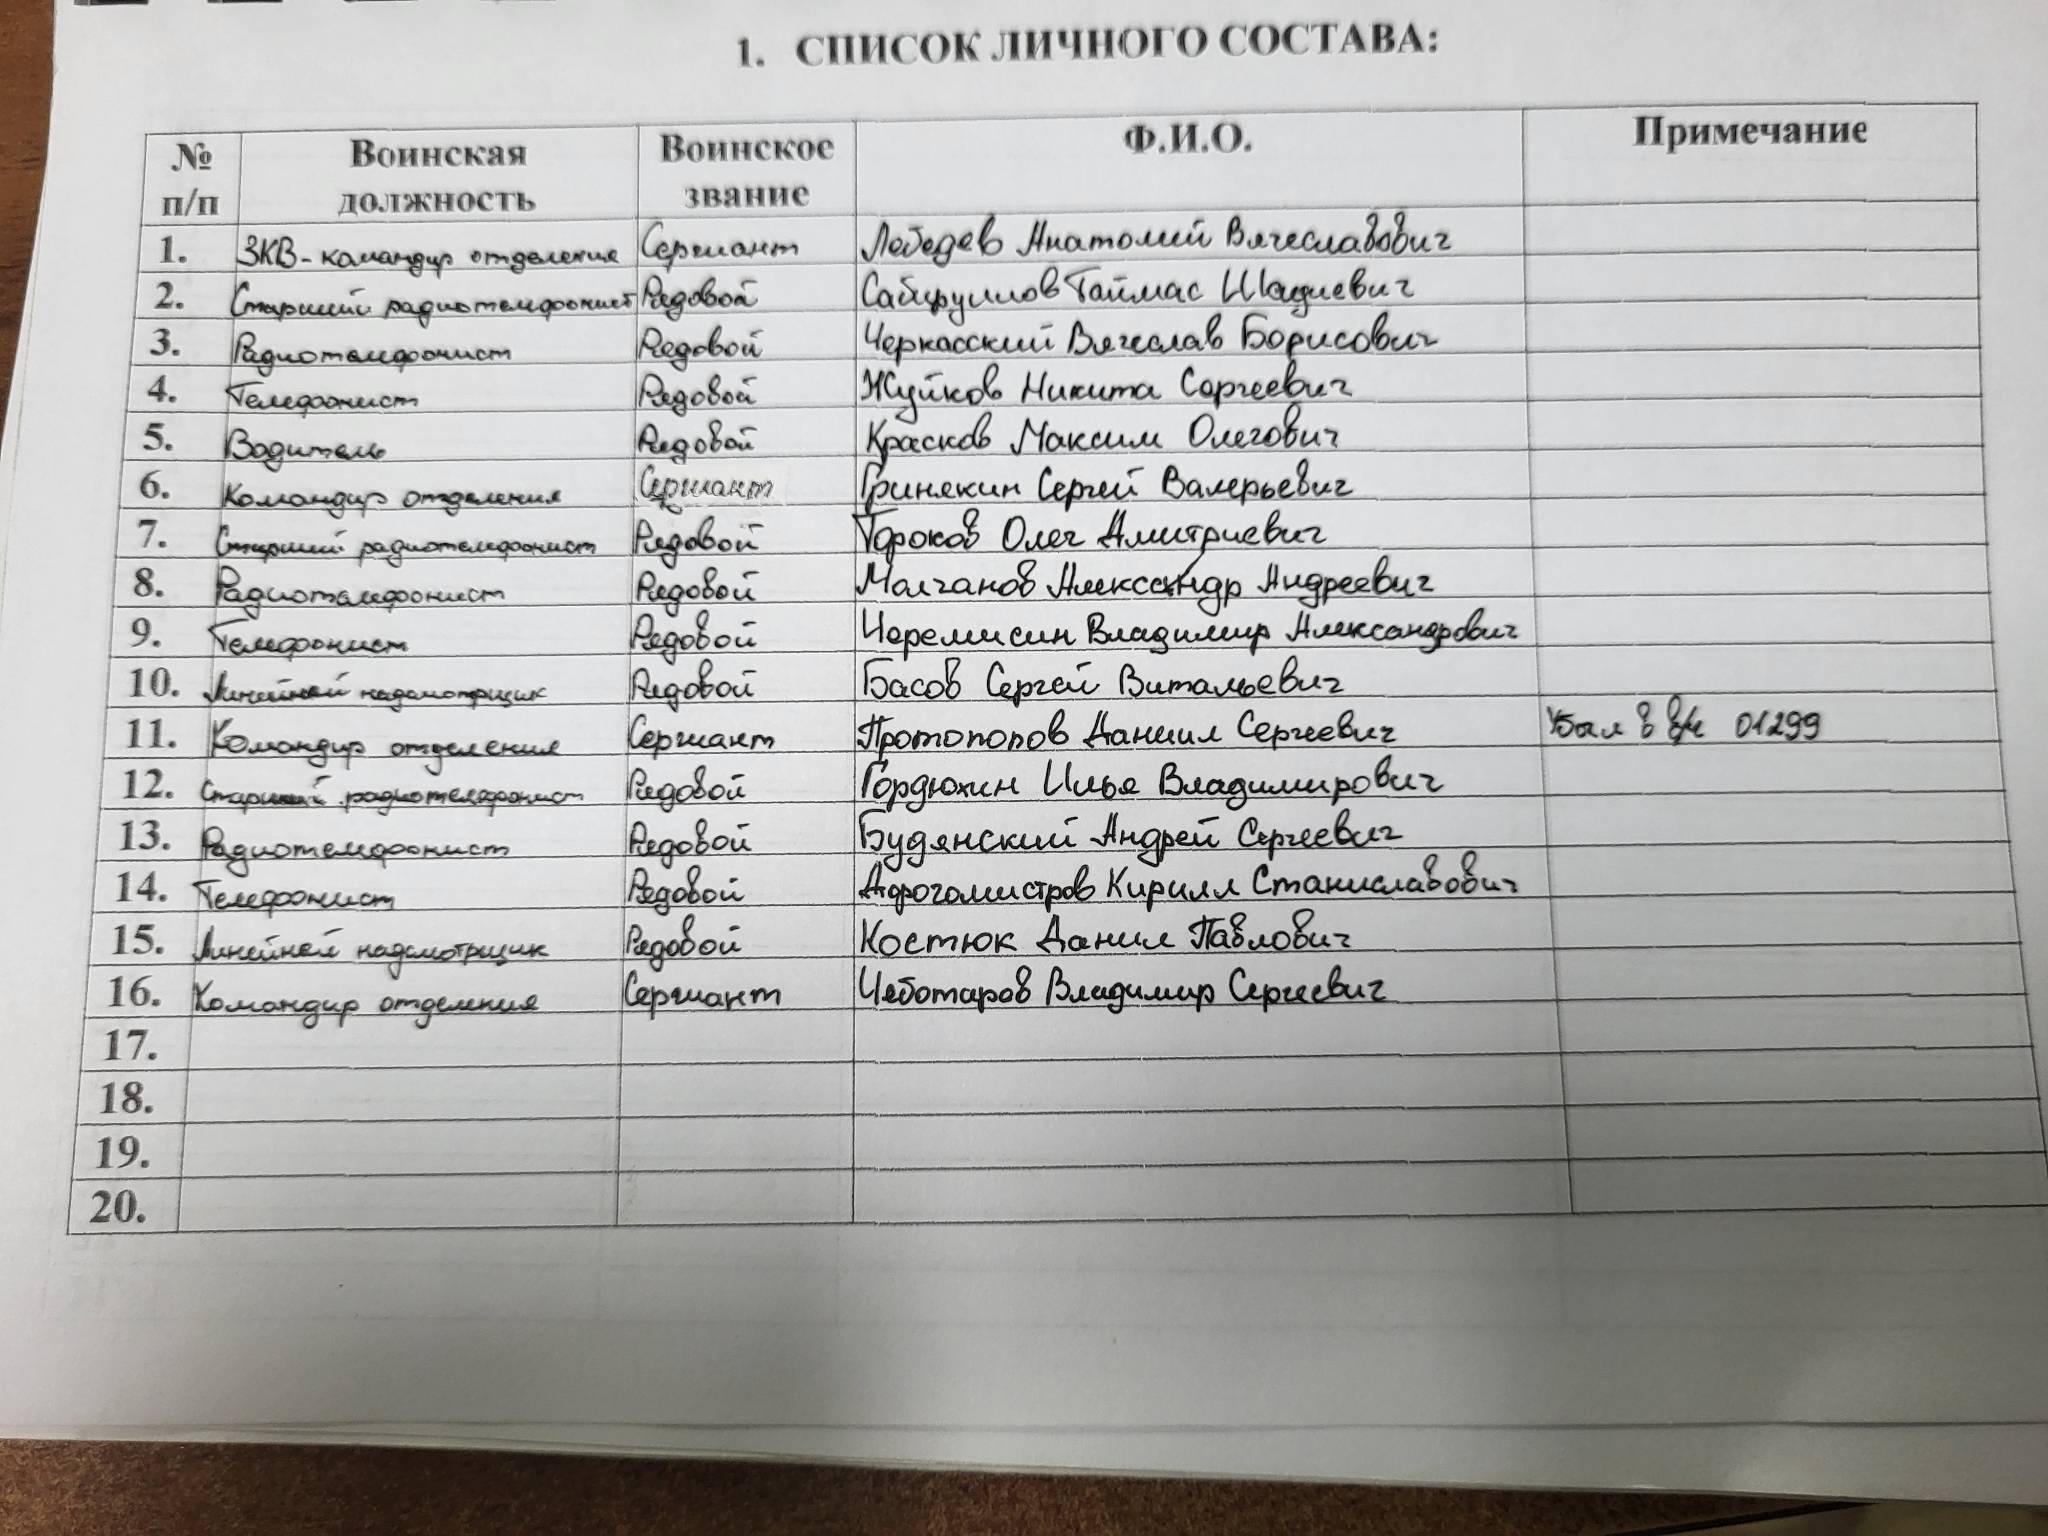 1. СПИСОК ЛИЧНОГО СОСТАВА:
№ п/п Воинская должность Воинское звание Ф.И.О. Примечание
1. ЗКВ-командир отделения Сержант Лебедев Анатолий Вячеславович
2. Старший радиотелефонист Рядовой Таймас
3. Радиотелефонист Рядовой Черкасский Вячеслав Борисович
4. Телефонист Рядовой Жуйков Никита Сергеевич
5. Водитель Рядовой Красков Максим Олегович
6. Командир отделения Сержант Гринякин Сергей Валерьевич
7. Старший радиотелефонист Рядовой Олег Дмитриевич
8. Радиотелефонист Рядовой Молчанов Александр Андреевич
9. Телефонист Рядовой Черемисин Владимир Александрович
10. Линейный надсмотрщик Рядовой Басов Сергей Витальевич
11. Командир отделения Сержант Протопопов Даниил Сергеевич Убыл в в/ч 01299
12. Старший радиотелефонист Рядовой Гордюхин Илья Владимирович
13. Радиотелефонист Рядовой Будянский Андрей Сергеевич
14. Телефонист Рядовой Кирилл Станиславович
15. Линейный надсмотрщик Рядовой Костюк Данил Павлович
16. Командир отделения Сержант Чеботаров Владимир Сергеевич
17.
18.
19.
20.